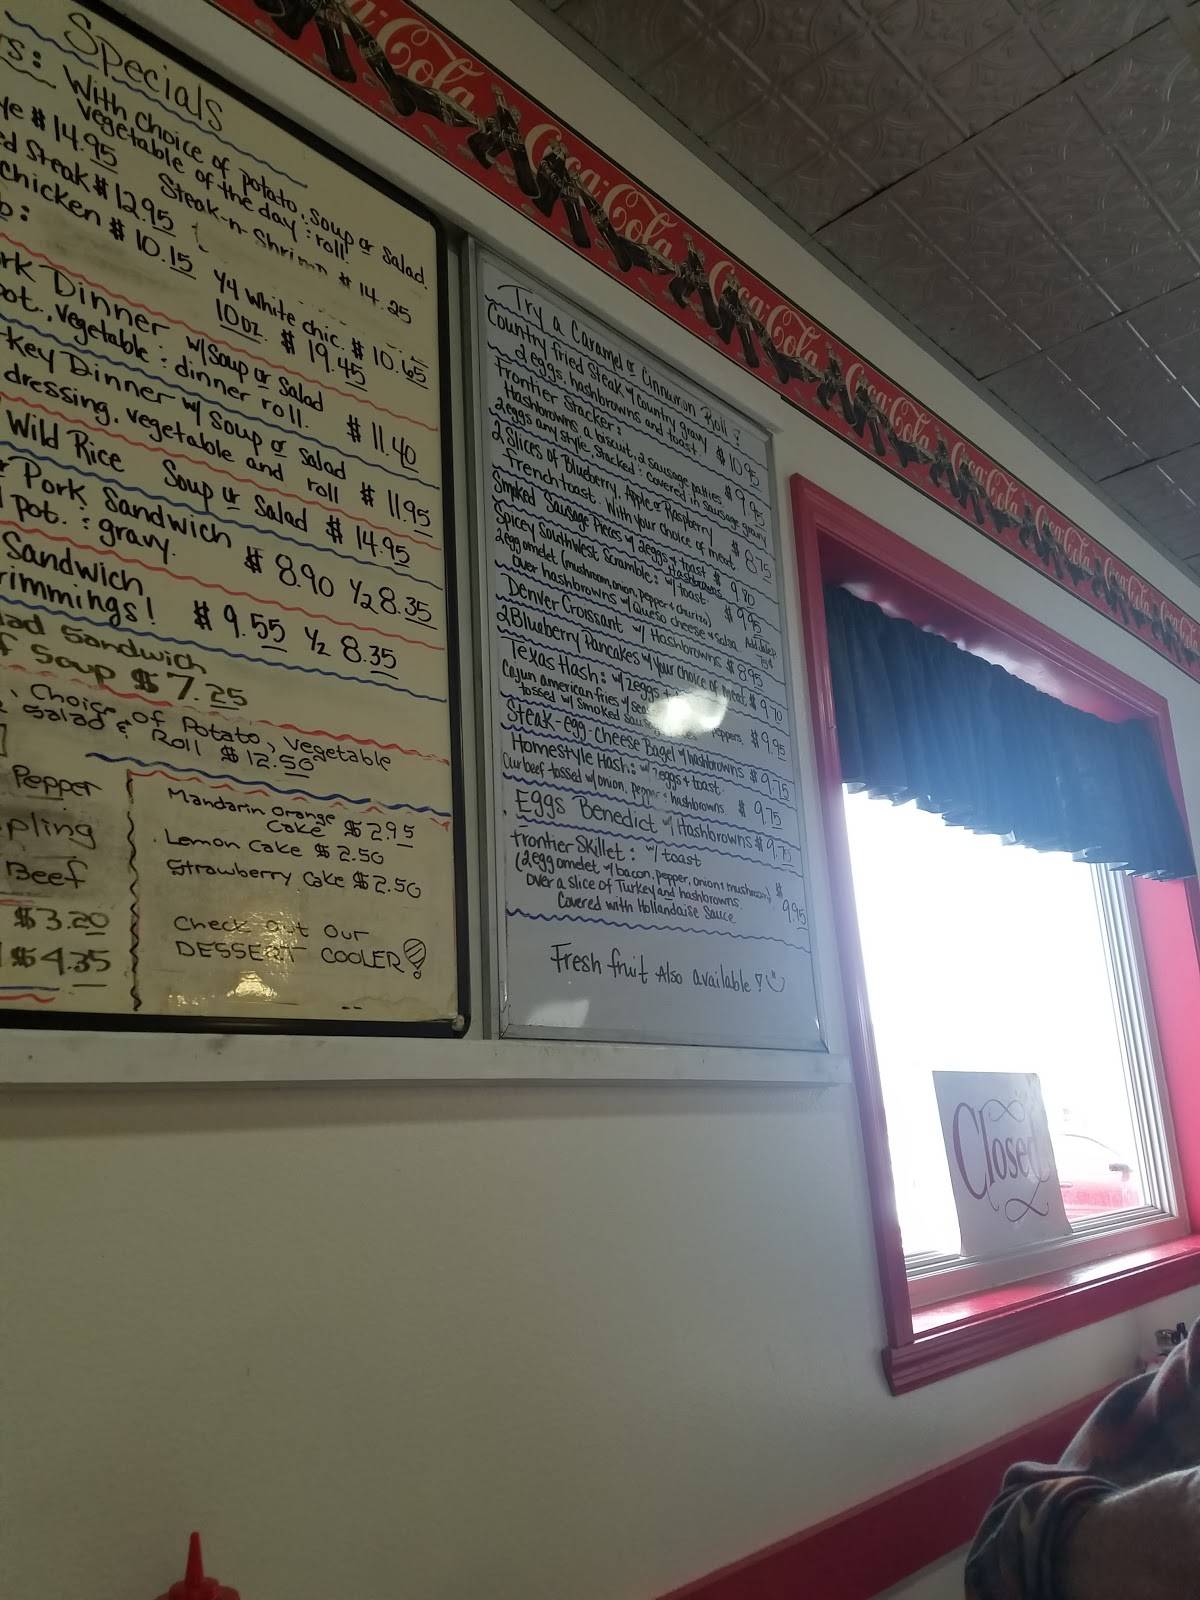 Specials
With choice of potato, soup or salad.
Vegetable of the day : roll!
$14.95 Steak-n-Shrimp $14.25
Steak $12.95
Chicken $10.15 1/4 White chic. $10.65
10oz. $19.45
Dinner w/Soup or Salad
pot., vegetable : dinner roll. $11.40
Dinner w/ Soup or Salad
dressing, vegetable and roll $11.95
Wild Rice Soup or Salad $14.95
Pork Sandwich
pot. : gravy. $8.90 1/2 8.35
Sandwich
! $9.55 1/2 8.35
Sandwich
Soup $7.25
Choice of Potato, Vegetable
Salad & Roll $12.50
Pepper
Beef
$3.20
$4.35
Mandarin Orange
Cake $2.95
Lemon Cake $2.50
Strawberry Cake $2.50
Check out our
DESSERT COOLER!
Try a Caramel or Cinnamon Roll!
Country fried Steak w/country gravy
2 eggs, hashbrowns and toast $10.95
Frontier Stacker:
Hashbrowns a biscuit, 2 sausage patties
2 eggs any style, Stacked : covered in sausage gravy $9.95
2 Slices of Blueberry, Apple or Raspberry
french toast. With your choice of meat. $8.75
Smoked Sausage Pieces w/ 2 eggs + toast
Hashbrowns $9.70
Spicy Southwest Scramble: w/toast.
2 egg omelet (mushroom, onion, pepper + churizo)
over hashbrowns w/Queso cheese + salsa $9.95
Denver Croissant w/ Hashbrowns $8.95
2 Blueberry Pancakes w/your choice of meat. $9.70
Texas Hash: w/ 2 eggs +
Cajun american fries w/ peppers,
tossed w/ Smoked $9.95
Steak-egg-cheese Bagel w/hashbrowns $9.75
Homestyle Hash: w/ 2 eggs + toast.
Our beef tossed w/onion, pepper : hashbrowns $9.75
Eggs Benedict w/Hashbrowns $9.75
Frontier Skillet: w/ toast
(2 egg omelet w/bacon, pepper, onion + mushroom)
over a slice of Turkey and hashbrowns
Covered with Hollandaise Sauce $9.95
Fresh fruit Also available!
Coca-Cola
Coca-Cola
Coca-Cola
Coca-Cola
Coca-Cola
Coca-Cola
Coca-Cola
Closed